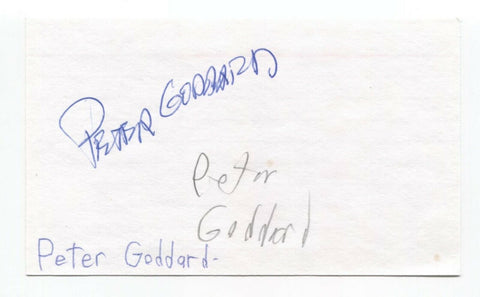 PETER GODDARD
Peter
Goddard
Peter Goddard-